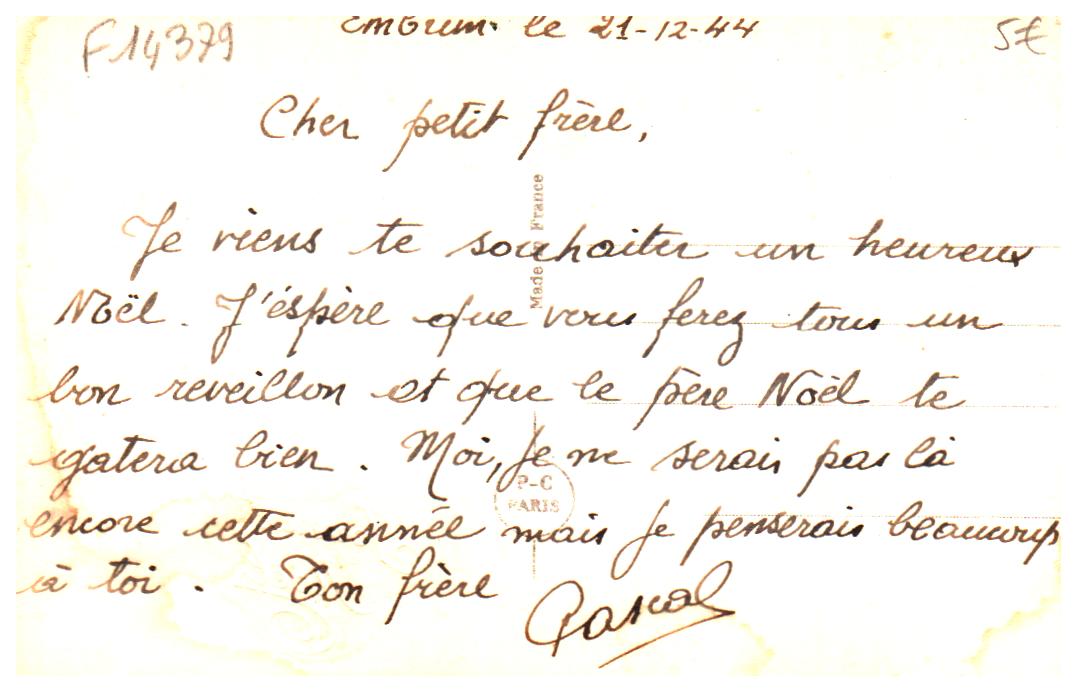 F14379
Embrun le 21-12-44
5€
Cher petit frère,
Made in France
Je viens te souhaiter un heureux
Noël. J'éspère que vous ferez tous un
bon reveillon et que le père Noël te
gatera bien. Moi, je ne serais pas là
P-C
PARIS
encore cette année mais je penserais beaucoup
à toi. Ton frère
Pascal